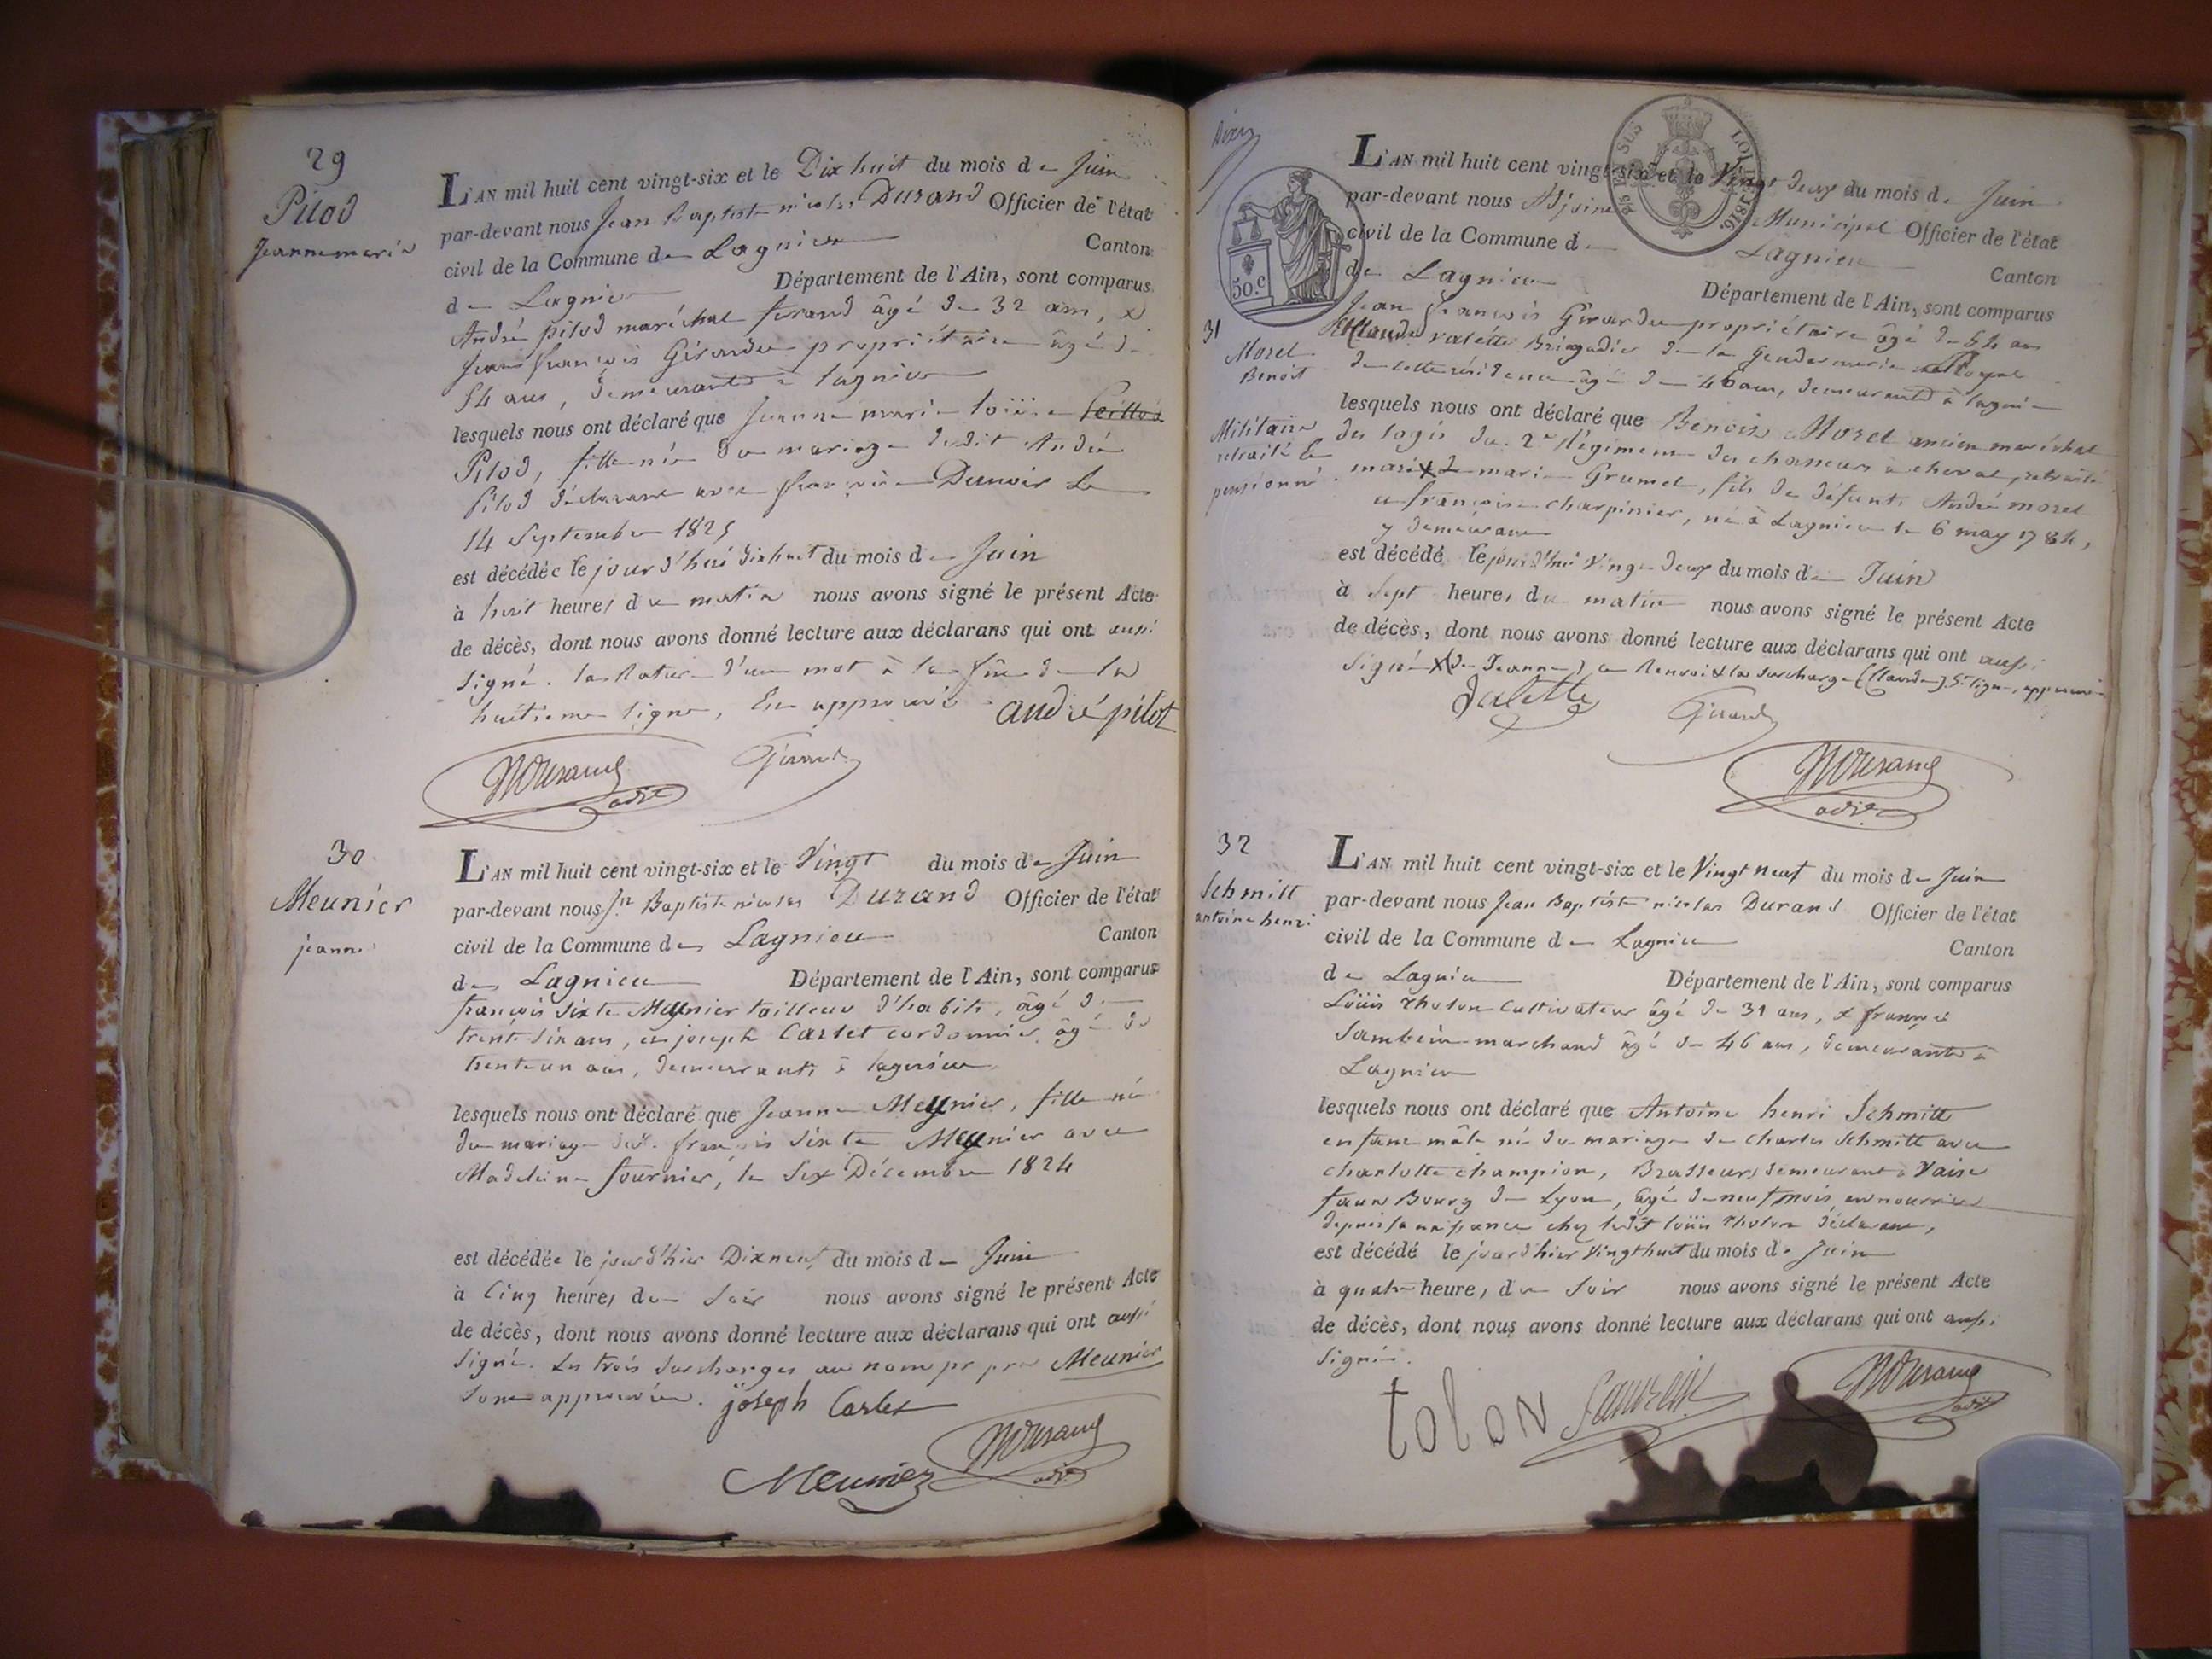 29
Pilod
Jeanne marie
L'AN mil huit cent vingt-six et le Dix huit du mois de Juin
par-devant nous Jean Baptiste nicolas Durand Officier de l'état
civil de la Commune de Lagnieu Canton
de Lagnieu Département de l'Ain, sont comparus
André pilod maréchal ferand âgé de 32 ans, &
Jean françois Girardu propriétaire âgé de
54 ans, demeurants à lagnieu
lesquels nous ont déclaré que Jeanne marie loüise
Pilod, fille née du mariage dudit André
Pilod déclarant avec françoise Dunoir le
14 Septembre 1825
est décédée le jour d'hui dixhuit du mois de Juin
à huit heures du matin nous avons signé le présent Acte
de décès, dont nous avons donné lecture aux déclarans qui ont aussi
signé. la Rature d'un mot à la fin de la
huitieme ligne, Est approuvé andré pilot
NDurand Girard
adjt
30
Meunier
jeanne
L'AN mil huit cent vingt-six et le Vingt du mois de Juin
par-devant nous Jn Baptiste nicolas Durand Officier de l'état
civil de la Commune de Lagnieu Canton
de Lagnieu Département de l'Ain, sont comparus
françois Sixte Meunier tailleur d'habits, âgé de
trente six ans, et joseph Carlet cordonnier âgé de
trente un ans, demeurants à lagnieu
lesquels nous ont déclaré que Jeanne Meunier, fille née
du mariage dud. françois Sixte Meunier avec
Madeleine fournier, le Six Décembre 1824
est décédée le jour d'hier Dixneuf du mois de Juin
à Cinq heures du Soir nous avons signé le présent Acte
de décès, dont nous avons donné lecture aux déclarans qui ont aussi
signé. Les trois surcharges au nom propre Meunier
sont approuvées. joseph Carlet
NDurand
Meunier adjt
50.C
LOI DE 1816
31
Morel
Benoit
Militaire
retraité &
pensionné
L'AN mil huit cent vingt-six et le Vingt deux du mois de Juin
par-devant nous Adjoint Municipal Officier de l'état
civil de la Commune de Lagnieu Canton
de Lagnieu Département de l'Ain, sont comparus
Jean François Girardu propriétaire âgé de 54 ans
Claude valette Brigadier de la Gendarmerie Royal
de cette résidence âgé de 46 ans, demeurants à lagnieu
lesquels nous ont déclaré que Benoit Morel ancien maréchal
des logis du 2e Régiment des chasseurs à cheval, retraité
mari de marie Grumet, fils de défunts André morel
et françoise charpinier, né à Lagnieu le 6 may 1784,
y demeurant
est décédé le jour d'hui Vingt deux du mois de Juin
à Sept heures du matin nous avons signé le présent Acte
de décès, dont nous avons donné lecture aux déclarans qui ont aussi
signé X (de Jeanne) ce Renvoi & la surcharge (Claude) 5e ligne, approuvé
Valette Girard
NDurand
adjt
32
Schmitt
antoine henri
L'AN mil huit cent vingt-six et le Vingt neuf du mois de Juin
par-devant nous Jean Baptiste nicolas Durand Officier de l'état
civil de la Commune de Lagnieu Canton
de Lagnieu Département de l'Ain, sont comparus
Loüis Tholon Cultivateur âgé de 31 ans, & françois
marchand âgé de 46 ans, demeurants à
Lagnieu
lesquels nous ont déclaré que Antoine henri Schmitt
enfant mâle né du mariage de Charles Schmitt avec
charlotte champion, Brasseurs demeurant à Vaise
faux Bourg de Lyon, âgé de neuf mois en nourrice
depuis sa naissance chez ledit loüis Tholon déclarant,
est décédé le jour d'hier Vingt huit du mois de Juin
à quatre heures du Soir nous avons signé le présent Acte
de décès, dont nous avons donné lecture aux déclarans qui ont aussi
signé.
tolon NDurand
adjt